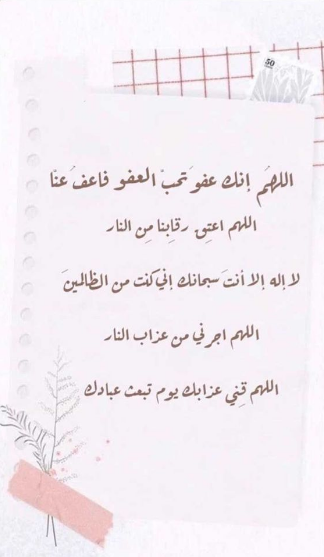 50
اللهُم إنك عفوَ تحبْ العفو فاعفُ عنّا
اللهم اعتِق رقابِنا مِن النار
لا إله إلا أنتَ سبحانك إني كنت من الظالمينَ
اللهم اجرني من عذاب النار
اللهم قِني عذابك يوم تبعث عبادك